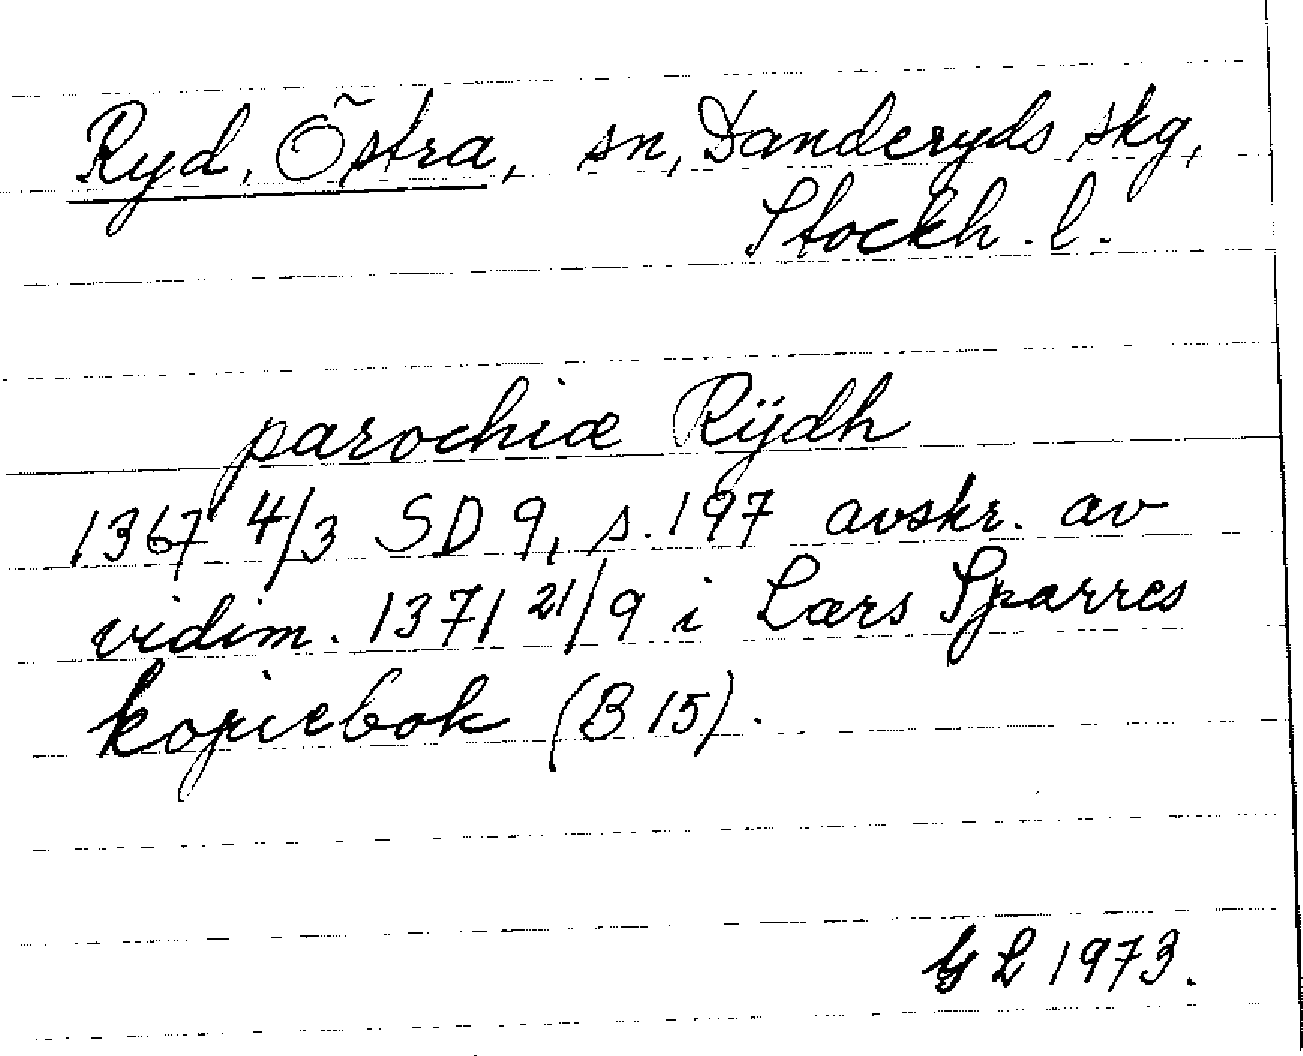 Ryd, Östra, sn, Danderyds skg,
Stockh. l.
parochiæ Rÿdh
1367 4/3 SD 9, s. 197 avskr. av
vidim. 1371 21/9 i Lars Sparres
kopiebok (B 15).
GL 1973.